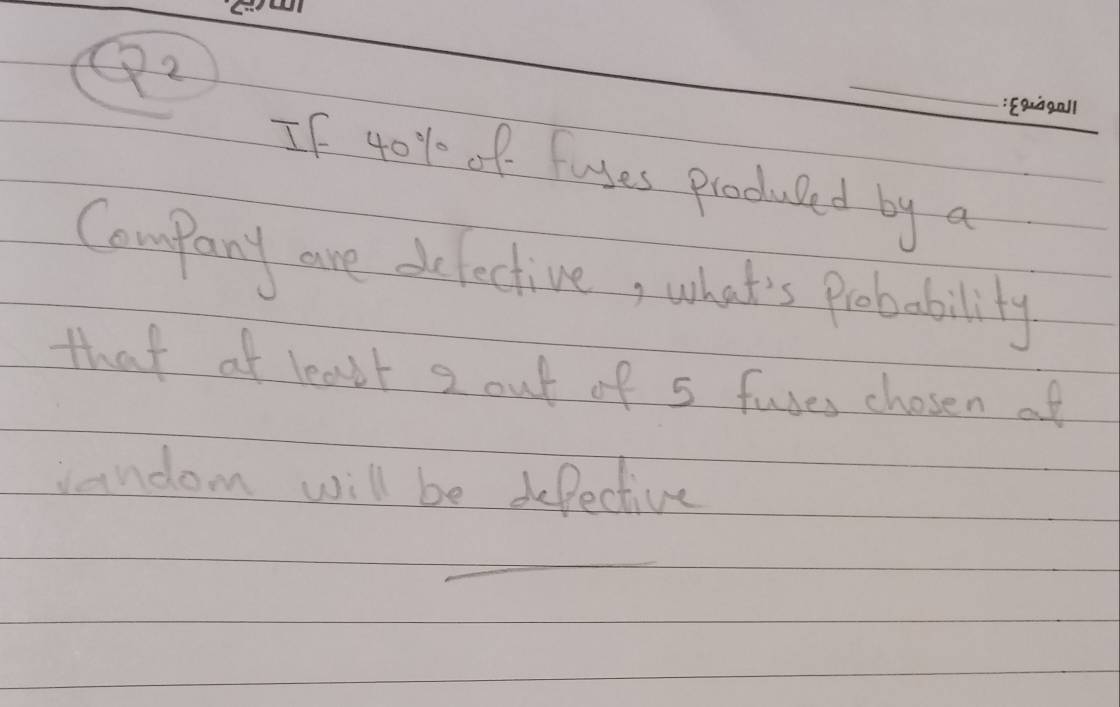 التاريخ:
الموضوع:
Q2
If 40% of fuses produced by a
Company are defective, what's Probability
that at least 2 out of 5 fuses chosen at
random will be defective